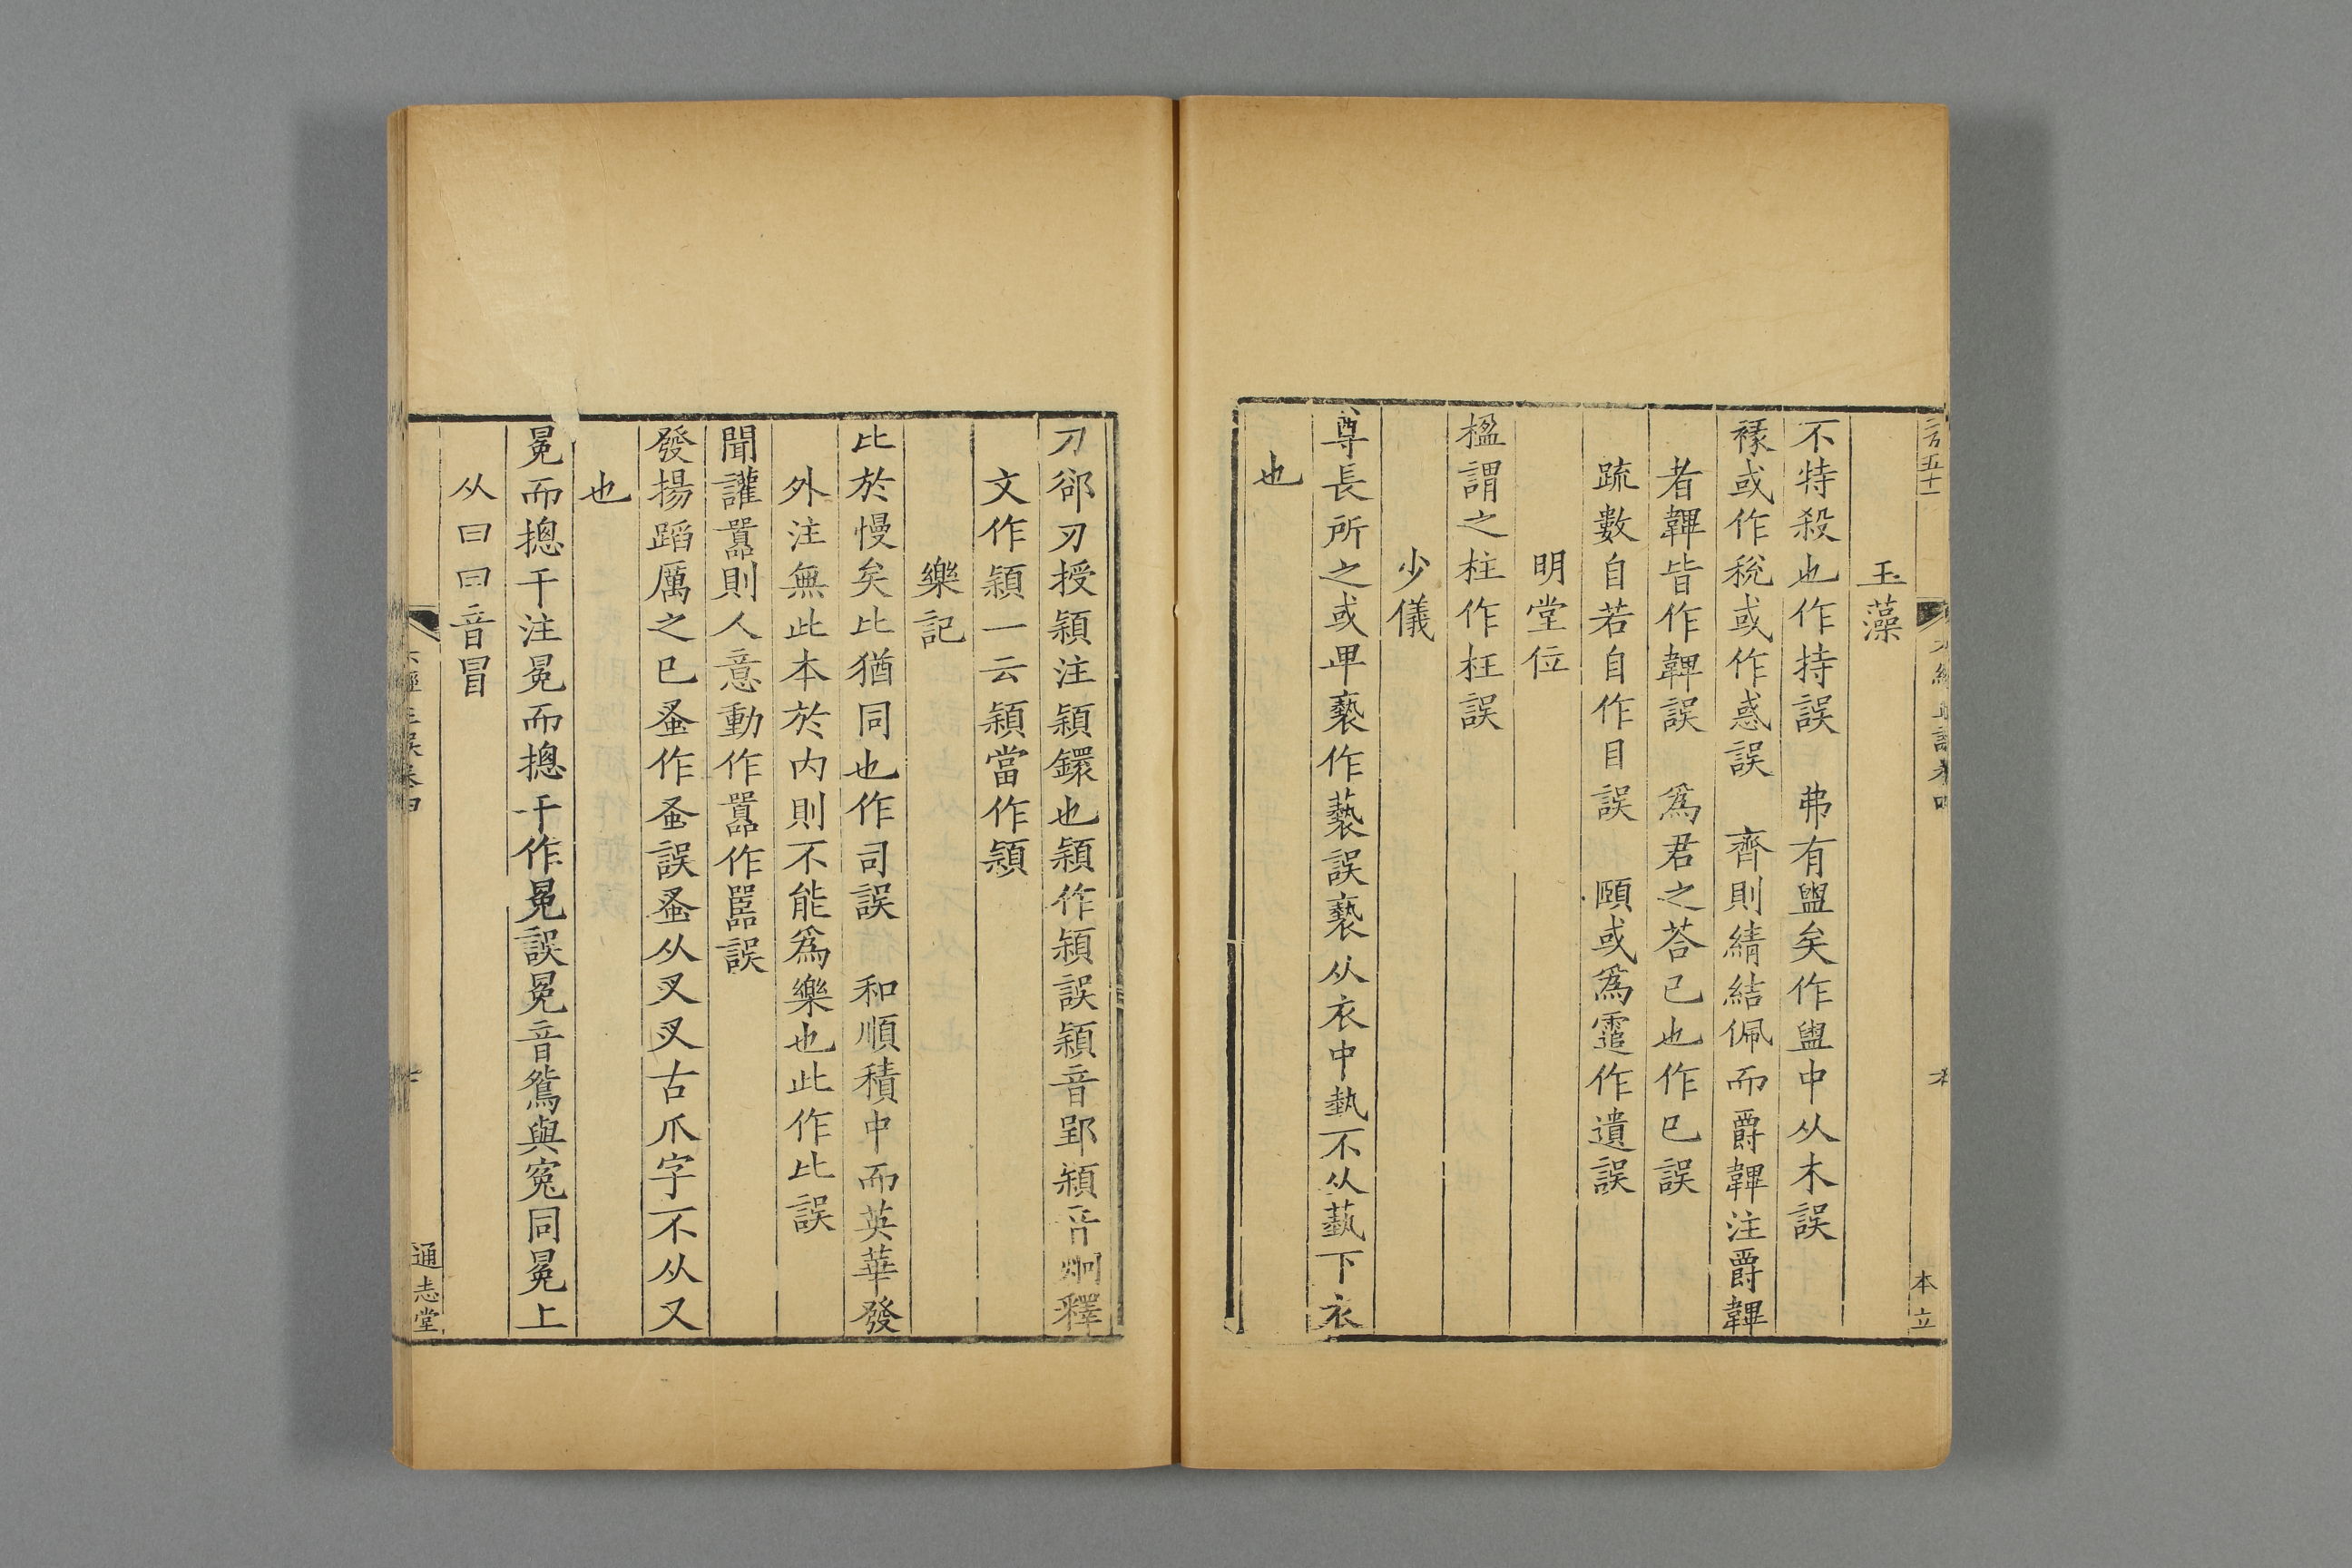 玉藻
不特殺也作持誤　弗有盥矣作盥中从木誤
褖或作稅或作惑誤　齊則綪結佩而爵韠注爵韠
者韠皆作韠誤　爲君之荅己也作巳誤
疏數自若自作目誤　頤或爲霱作遺誤
明堂位
楹謂之柱作枉誤
少儀
尊長所之或卑褻作藝誤褻从衣中埶不从蓺下衣
也
刀郤刃授穎注穎鐶也穎作潁誤穎音郢潁音炯釋
文作穎一云穎當作熲
樂記
比於慢矣比猶同也作司誤　和順積中而英華發
外注無此本於内則不能爲樂也此作比誤
聞讙嚚則人意動作嚚作嚚誤
發揚蹈厲之已蚤作蚤誤蚤从叉叉古爪字不从又
也
冕而摠干注冕而摠干作冕誤冕音鴛與寃同冕上
从曰曰音冒
本立
通志堂